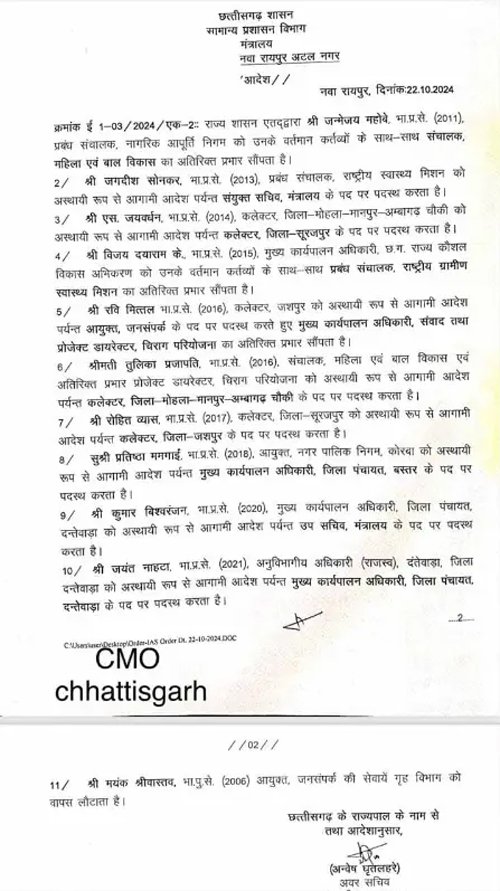 छत्तीसगढ़ शासन
सामान्य प्रशासन विभाग
मंत्रालय
नवा रायपुर अटल नगर
'आदेश//
नवा रायपुर, दिनांक:22.10.2024
क्रमांक ई 1-03/2024/एक-2:: राज्य शासन एतद्द्वारा श्री जन्मेजय महोबे, भा.प्र.से. (2011),
प्रबंध संचालक, नागरिक आपूर्ति निगम को उनके वर्तमान कर्तव्यों के साथ-साथ संचालक,
महिला एवं बाल विकास का अतिरिक्त प्रभार सौंपता है।
2/ श्री जगदीश सोनकर, भा.प्र.से. (2013), प्रबंध संचालक, राष्ट्रीय स्वास्थ्य मिशन को
अस्थायी रूप से आगामी आदेश पर्यन्त संयुक्त सचिव, मंत्रालय के पद पर पदस्थ करता है।
3/ श्री एस. जयवर्धन, भा.प्र.से. (2014), कलेक्टर, जिला-मोहला-मानपुर-अम्बागढ़ चौकी को
अस्थायी रूप से आगामी आदेश पर्यन्त कलेक्टर, जिला-सूरजपुर के पद पर पदस्थ करता है।
4/ श्री विजय दयाराम के., भा.प्र.से. (2015), मुख्य कार्यपालन अधिकारी, छ.ग. राज्य कौशल
विकास अभिकरण को उनके वर्तमान कर्तव्यों के साथ-साथ प्रबंध संचालक, राष्ट्रीय ग्रामीण
स्वास्थ्य मिशन का अतिरिक्त प्रभार सौंपता है।
5/ श्री रवि मित्तल भा.प्र.से. (2016), कलेक्टर, जशपुर को अस्थायी रूप से आगामी आदेश
पर्यन्त आयुक्त, जनसंपर्क के पद पर पदस्थ करते हुए मुख्य कार्यपालन अधिकारी, संवाद तथा
प्रोजेक्ट डायरेक्टर, चिराग परियोजना का अतिरिक्त प्रभार सौंपता है।
6/ श्रीमती तुलिका प्रजापति, भा.प्र.से. (2016), संचालक, महिला एवं बाल विकास एवं
अतिरिक्त प्रभार प्रोजेक्ट डायरेक्टर, चिराग परियोजना को अस्थायी रूप से आगामी आदेश
पर्यन्त कलेक्टर, जिला-मोहला-मानपुर-अम्बागढ़ चौकी के पद पर पदस्थ करता है।
7/ श्री रोहित व्यास, भा.प्र.से. (2017), कलेक्टर, जिला-सूरजपुर को अस्थायी रूप से आगामी
आदेश पर्यन्त कलेक्टर, जिला-जशपुर के पद पर पदस्थ करता है।
8/ सुश्री प्रतिष्ठा ममगाई, भा.प्र.से. (2018), आयुक्त, नगर पालिक निगम, कोरबा को अस्थायी
रूप से आगामी आदेश पर्यन्त मुख्य कार्यपालन अधिकारी, जिला पंचायत, बस्तर के पद पर
पदस्थ करता है।
9/ श्री कुमार बिश्वरंजन, भा.प्र.से. (2020), मुख्य कार्यपालन अधिकारी, जिला पंचायत,
दन्तेवाड़ा को अस्थायी रूप से आगामी आदेश पर्यन्त उप सचिव, मंत्रालय के पद पर पदस्थ
करता है।
10/ श्री जयंत नाहटा, भा.प्र.से. (2021), अनुविभागीय अधिकारी (राजस्व), दंतेवाड़ा, जिला
दन्तेवाड़ा को अस्थायी रूप से आगामी आदेश पर्यन्त मुख्य कार्यपालन अधिकारी, जिला पंचायत,
दन्तेवाड़ा के पद पर पदस्थ करता है।
....2
C:\Users\user\Desktop\Order-IAS Order Dt. 22-10-2024.DOC
CMO
chhattisgarh
//02//
11/ श्री मयंक श्रीवास्तव, भा.पु.से. (2006) आयुक्त, जनसंपर्क की सेवायें गृह विभाग को
वापस लौटाता है।
छत्तीसगढ़ के राज्यपाल के नाम से
तथा आदेशानुसार,
(अन्वेष घृतलहरे)
अवर सचिव